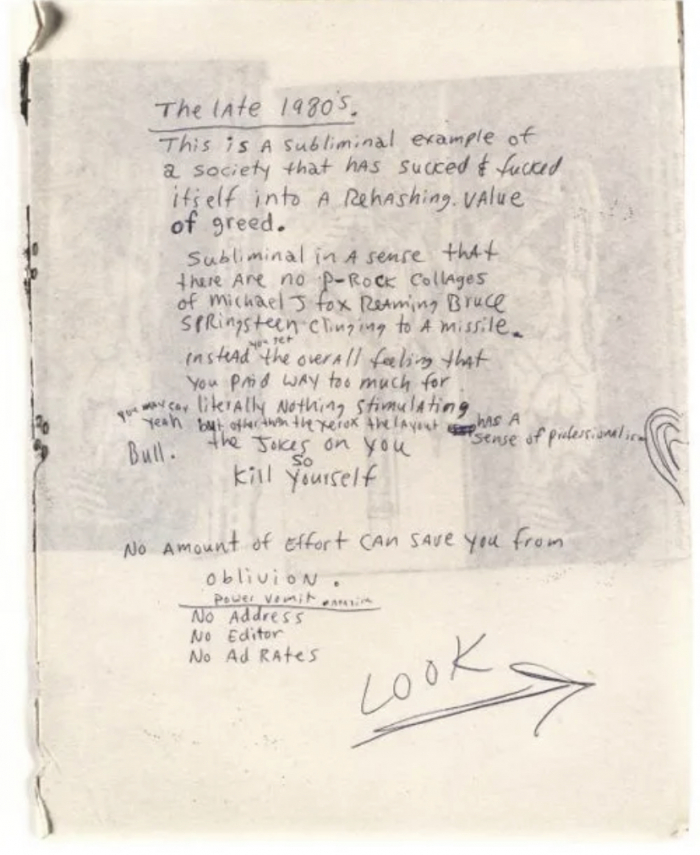 The late 1980's.
This is A subliminal example of
a society that HAS sucked & fucked
itself into A Rehashing. VAlue
of greed.
Subliminal in A sense thAt
there Are no P-Rock Collages
of Michael J fox ReAming Bruce
SPRingsteen Clinging to A missile.
insteAd you get the overall feeling that
you PAid WAY too much for
literally Nothing Stimulating
you may say yeah but other than the xerox the layout HAS A sense of professionalism
Bull. the Jokes on you
so
kill yourself
No Amount of Effort CAN SAve you from
oblivion.
Power Vomit
No Address
No Editor
No Ad RAtes
LOOK